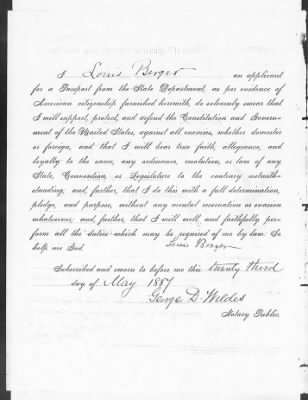 I Louis Berger an applicant
for a Passport from the State Department, as per evidence of
American citizenship furnished herewith, do solemnly swear that
I will support, protect, and defend the Constitution and Govern-
ment of the United States, against all enemies, whether domestic
or foreign, and that I will bear true faith, allegiance, and
loyalty to the same, any ordinance, resolution, or law of any
State, Convention, or Legislature to the contrary notwith-
standing, and, further, that I do this with a full determination,
pledge, and purpose, without any mental reservation or evasion
whatsoever; and, further, that I will well, and faithfully per-
form all the duties which may be required of me by law: So
help me God.
Louis Berger
Subscribed and sworn to before me this twenty third
day of May 1887
George D. Wildes
Notary Public.